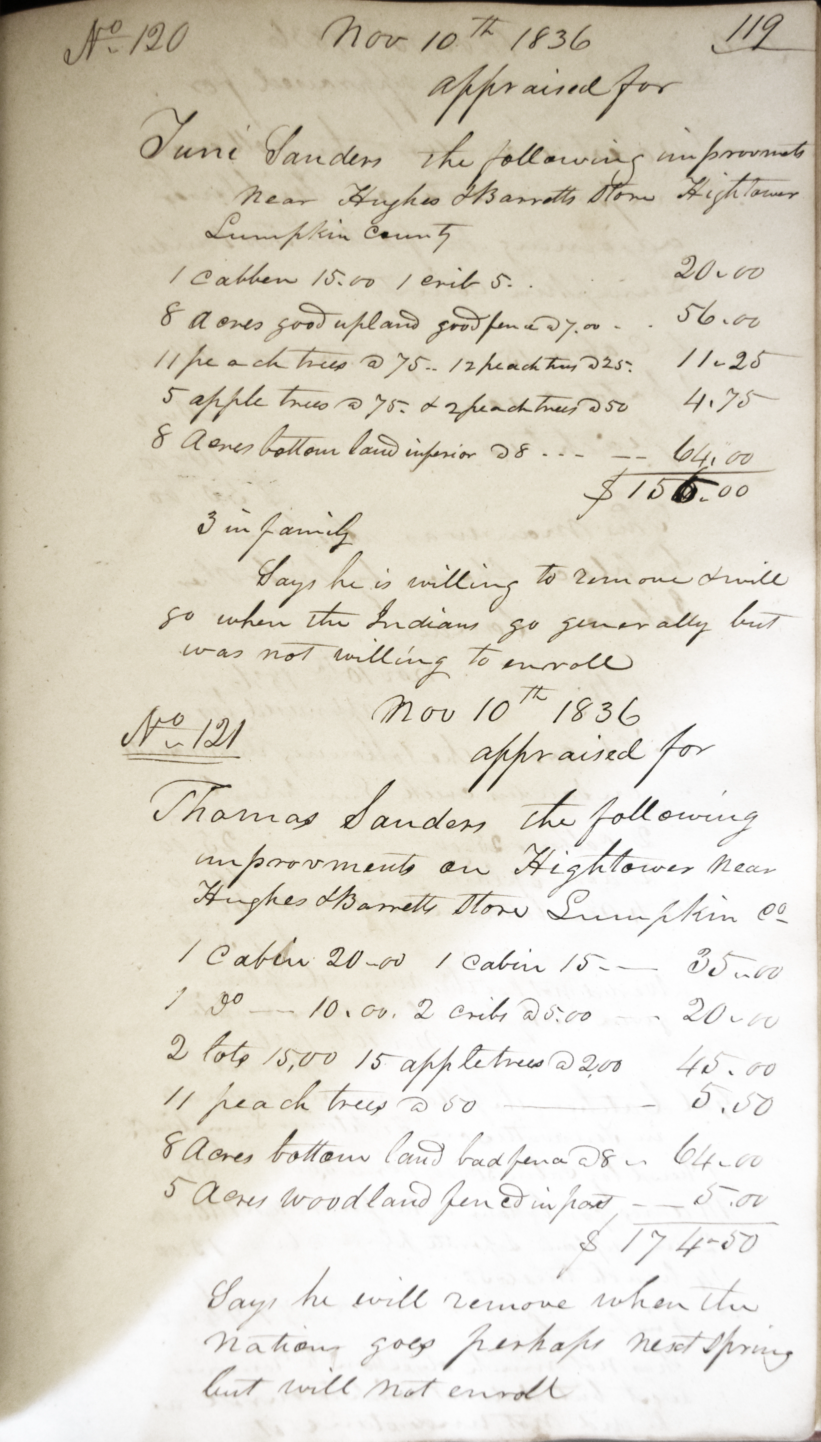 No 120 Nov 10th 1836 119
appraised for
Juni Sanders the following improvmets
Near Hughes & Barretts Store Hightower
Lumpkin County
1 Cabben 15.00 1 crib 5. . 20.00
8 Acres good upland good fence @ 7.00 - . 56.00
11 peach trees @ 75.. 12 peach trees @ 25. 11.25
5 apple trees @ 75. & 2 peach trees @ 50 4.75
8 Acres bottom land inferior @ 8 - - - -- 64.00
$ 156.00
3 in family
Says he is willing to remove & will
go when the Indians go generally but
was not willing to enroll
Nov 10th 1836
No 121
appraised for
Thomas Sanders the following
improvments on Hightower Near
Hughes & Barretts Store Lumpkin Co
1 Cabin 20.00 1 cabin 15.-- 35.00
1 do -- 10.00. 2 cribs @ 5.00 - - 20.00
2 lots 15,00 15 apple trees @ 2,00 45.00
11 peach trees @ 50 -- - 5.50
8 Acres bottom land bad fence @ 8 - 64.00
5 Acres woodland fenced in part -- 5.00
$ 174.50
Says he will remove when the
Nations goes perhaps next Spring
but will not enroll